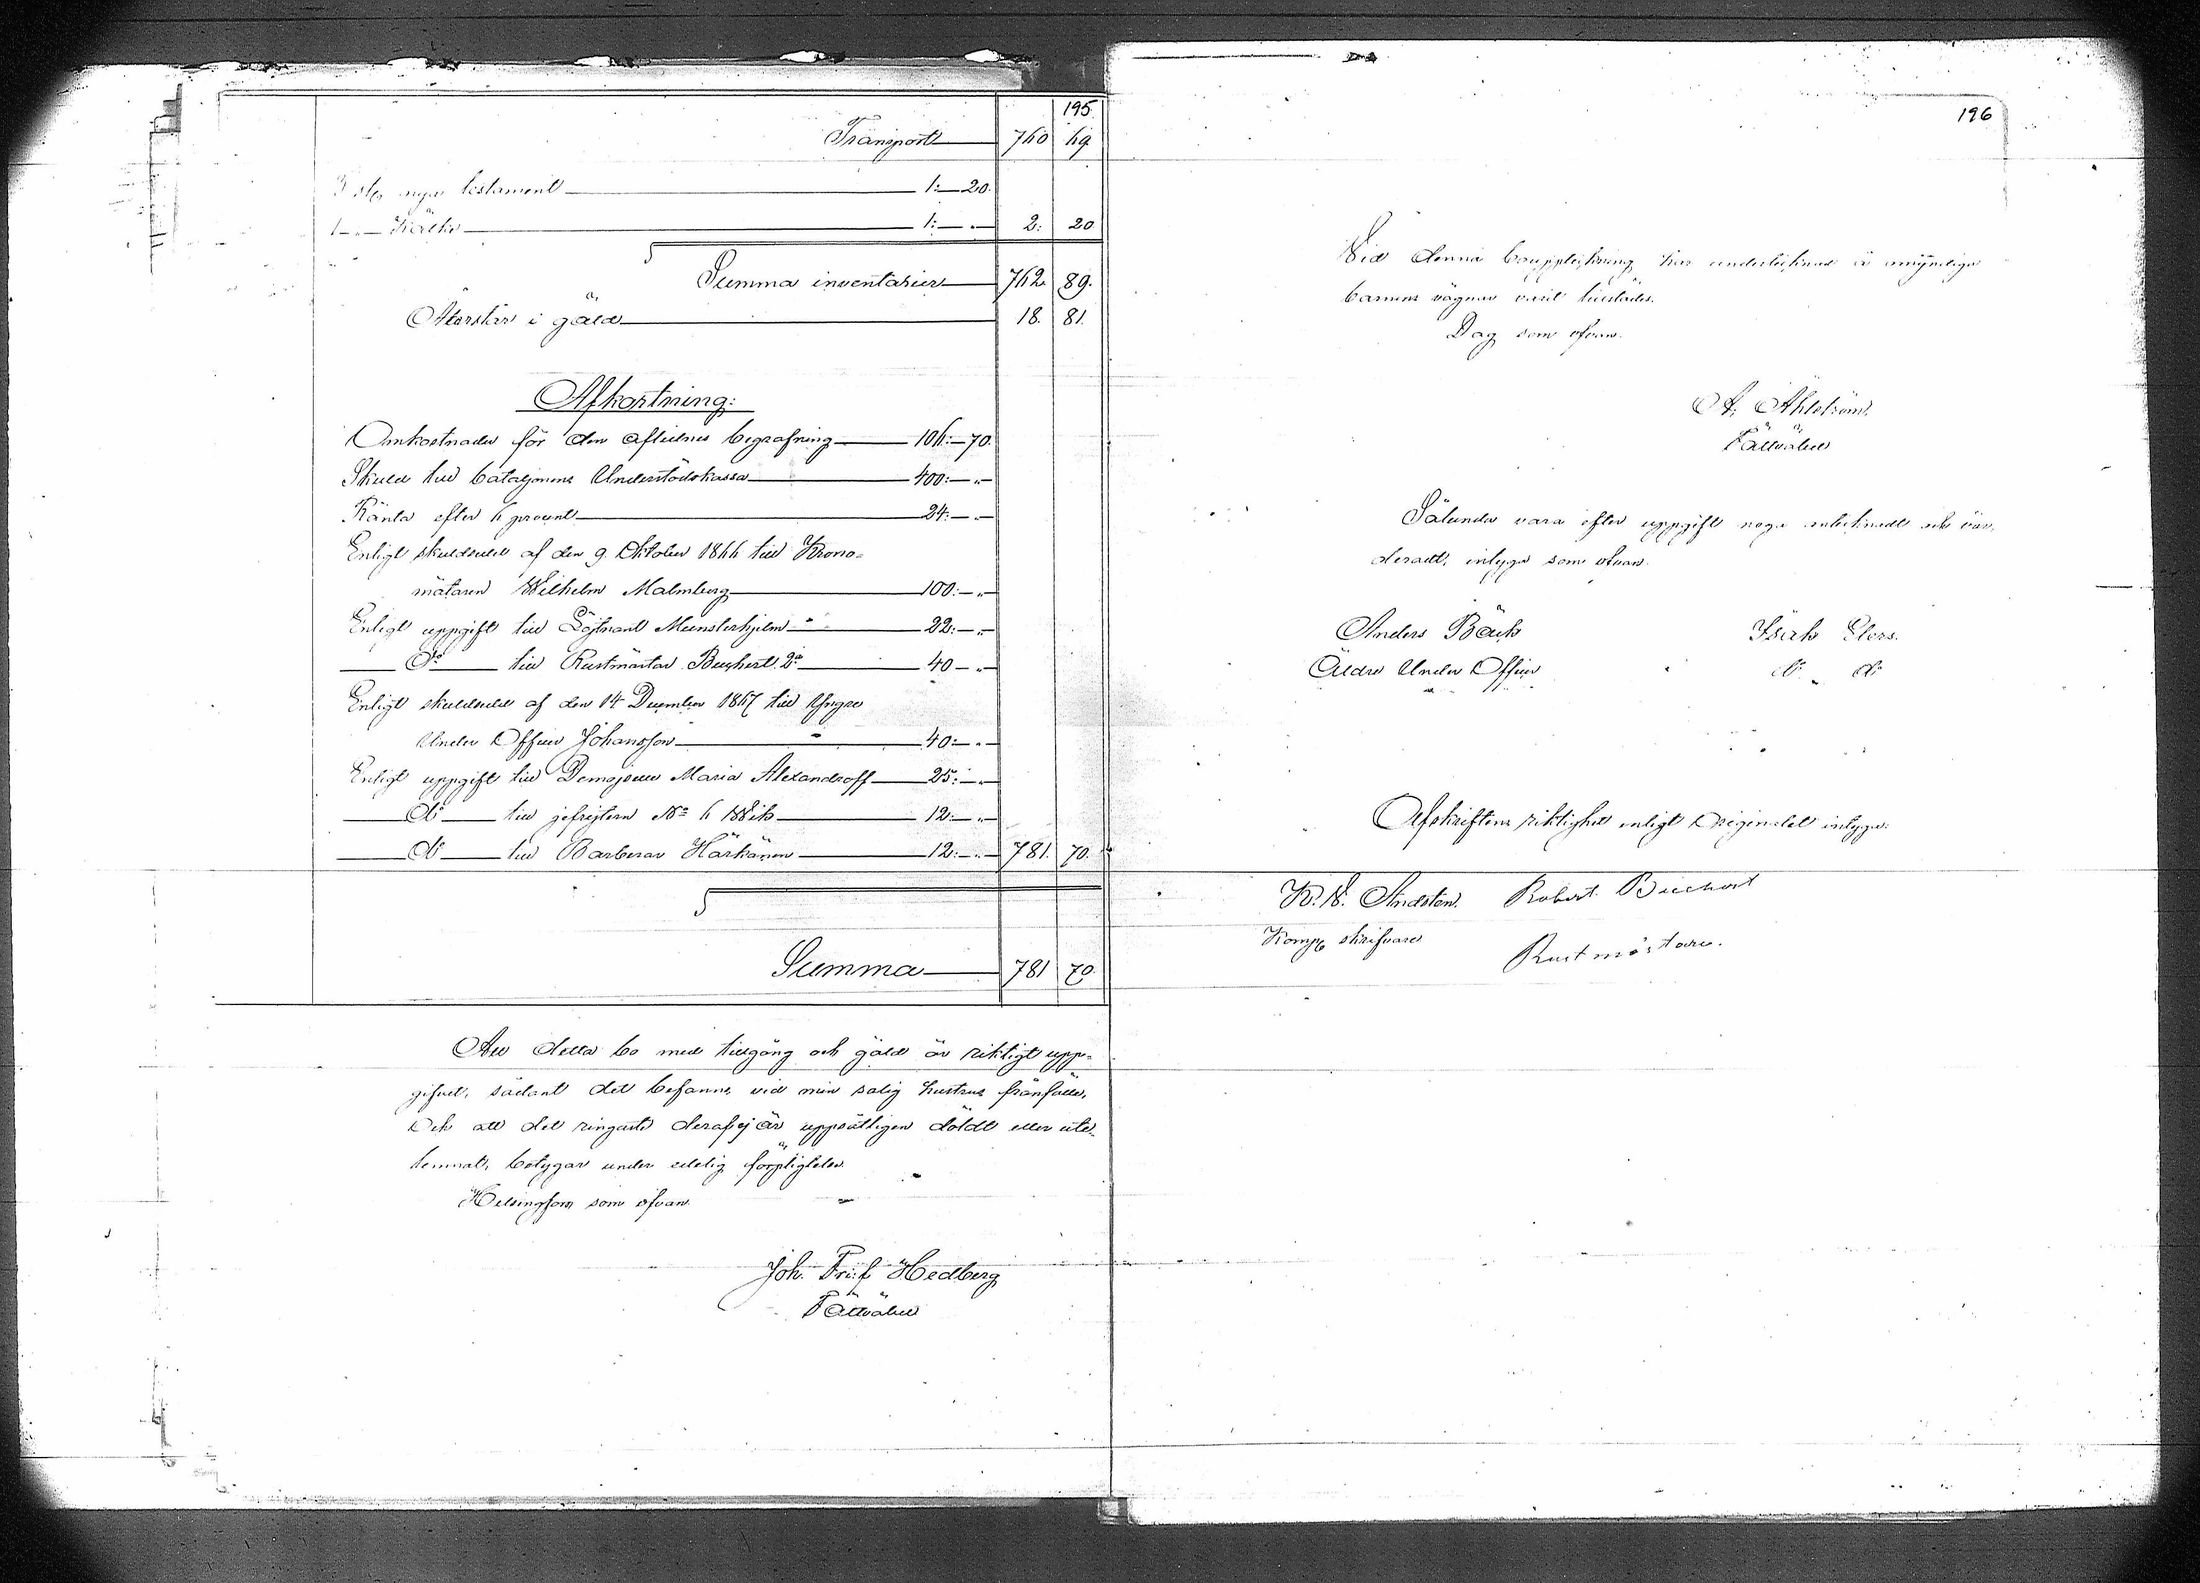 195.
Transport 760 69.
3 st. nya testament 1:—20.
1 — " — Kälke 1:—"— 2: 20
Summa inventarier 762. 89.
Återstår i gäld 18. 81.
Afkortning:
Omkostnader för den aflidnes begrafning 106:—70.
Skuld till bataljonens Understödskassa 400:—"—
Ränta efter 6 procent 24:—"—
Enligt skuldsedel af den 9 Oktober 1866 till Krono-
mätaren Wilhelm Malmberg 100:—"—
Enligt uppgift till Löjtnant Munsterhjelm 22:—"—
do till Rustmästar Buchert 2a 40—"—
Enligt skuldsedel af den 14 December 1867 till Yngre
Under Officer Johansson 40:—"—
Enligt uppgift till Demojselle Maria Alexandroff 25:—"—
do till gefrejtern No 6 Wik 12:—"—
do till Barberar Härkänen 12:—"— 781. 70.
Summa 781 70.
Att detta bo med tillgång och gäld är riktigt upp-
gifvet, sådant det befanns vid min salig hustrus frånfälle,
och att det ringaste deraf ej är uppsåtligen döldt eller ute-
lemnat, betygar under edelig förpligtelse.
Helsingfors som ofvan.
Joh. Fri:f Hedberg
Fältväbel
196
Vid denna bouppteckning har undertecknad å omyndiga
barnens vägnar varit tillstädes.
Dag som ofvan.
A. Ahlström.
Fältväbel
Sålunda vara efter uppgift noga antecknadt och vär-
deradt, intyga som ofvan.
Anders Bäck Isak Elers.
Äldre Under Officer do do
Afskriftens riktighet enligt Originalet intyga:
K. W. Andsten. Robert Buchert
Komp. skrifvare Rustmästare.